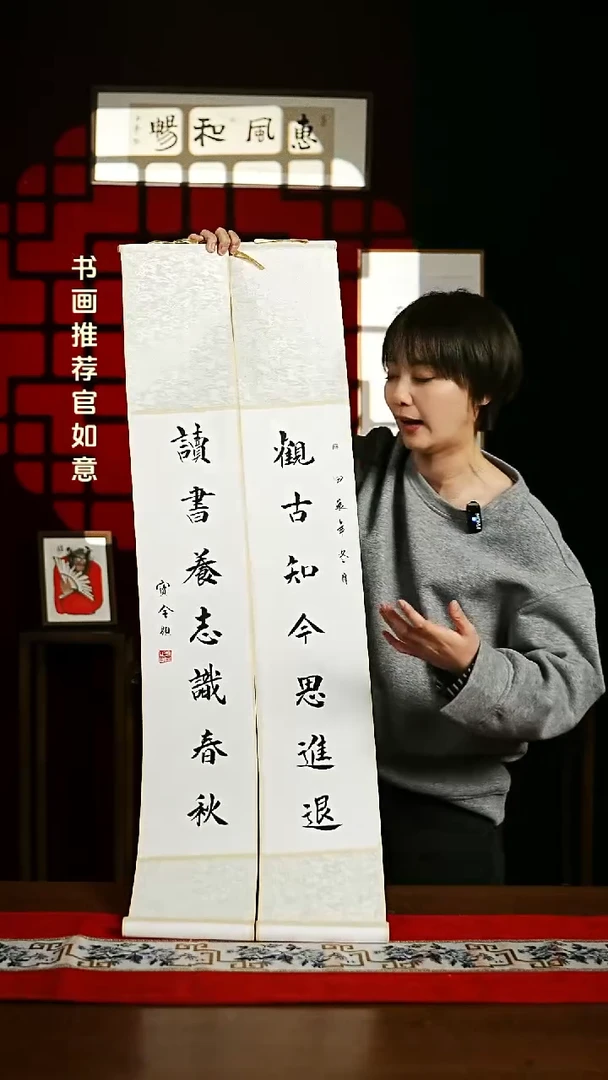 惠風和暢
书画推荐官如意
觀古知今思進退
讀書養志識春秋